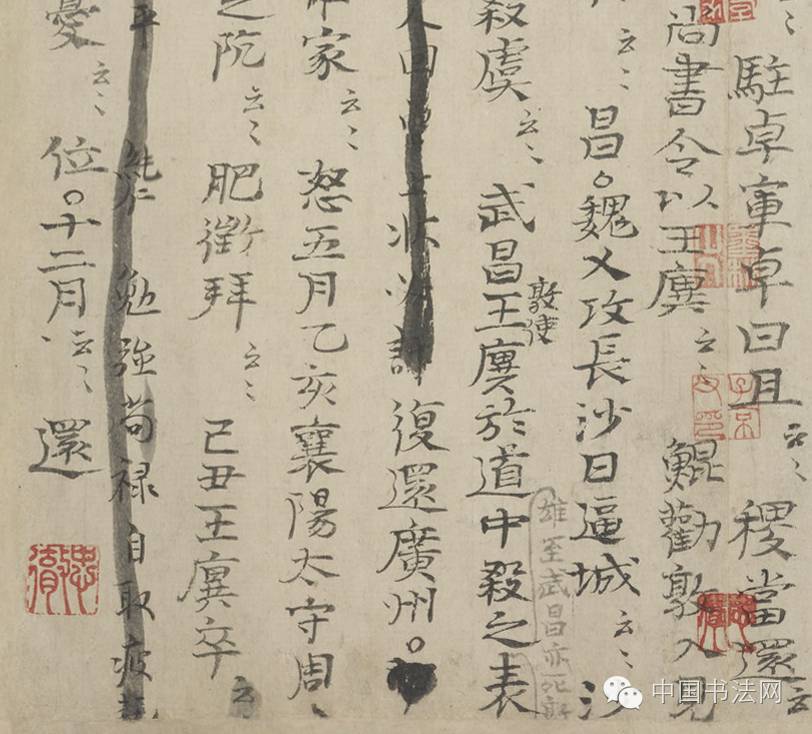 駐卓軍卓曰且云〻稷當還云
尚書令以王廙云〻鯤勸敦入見
云〻昌魏乂攻長沙日逼城云〻沙
雄至武昌亦死
敦使
殺虞云〻武昌王廙於道中殺之表
復還廣州
軍家云〻怒五月乙亥襄陽太守周〻
之阮云〻肥徵拜云〻己丑王廙卒云
純仁勉強苟祿自取疲
憂云〻位十二月云〻還
中国书法网